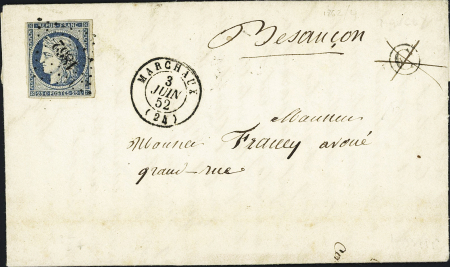 REPUB. FRANC.
1832
25 C. POSTES 25 C.
MARCHAUX
3
JUIN
52
(24)
Besançon
Monsieur
Monsieur Francey avoué
grand-rue